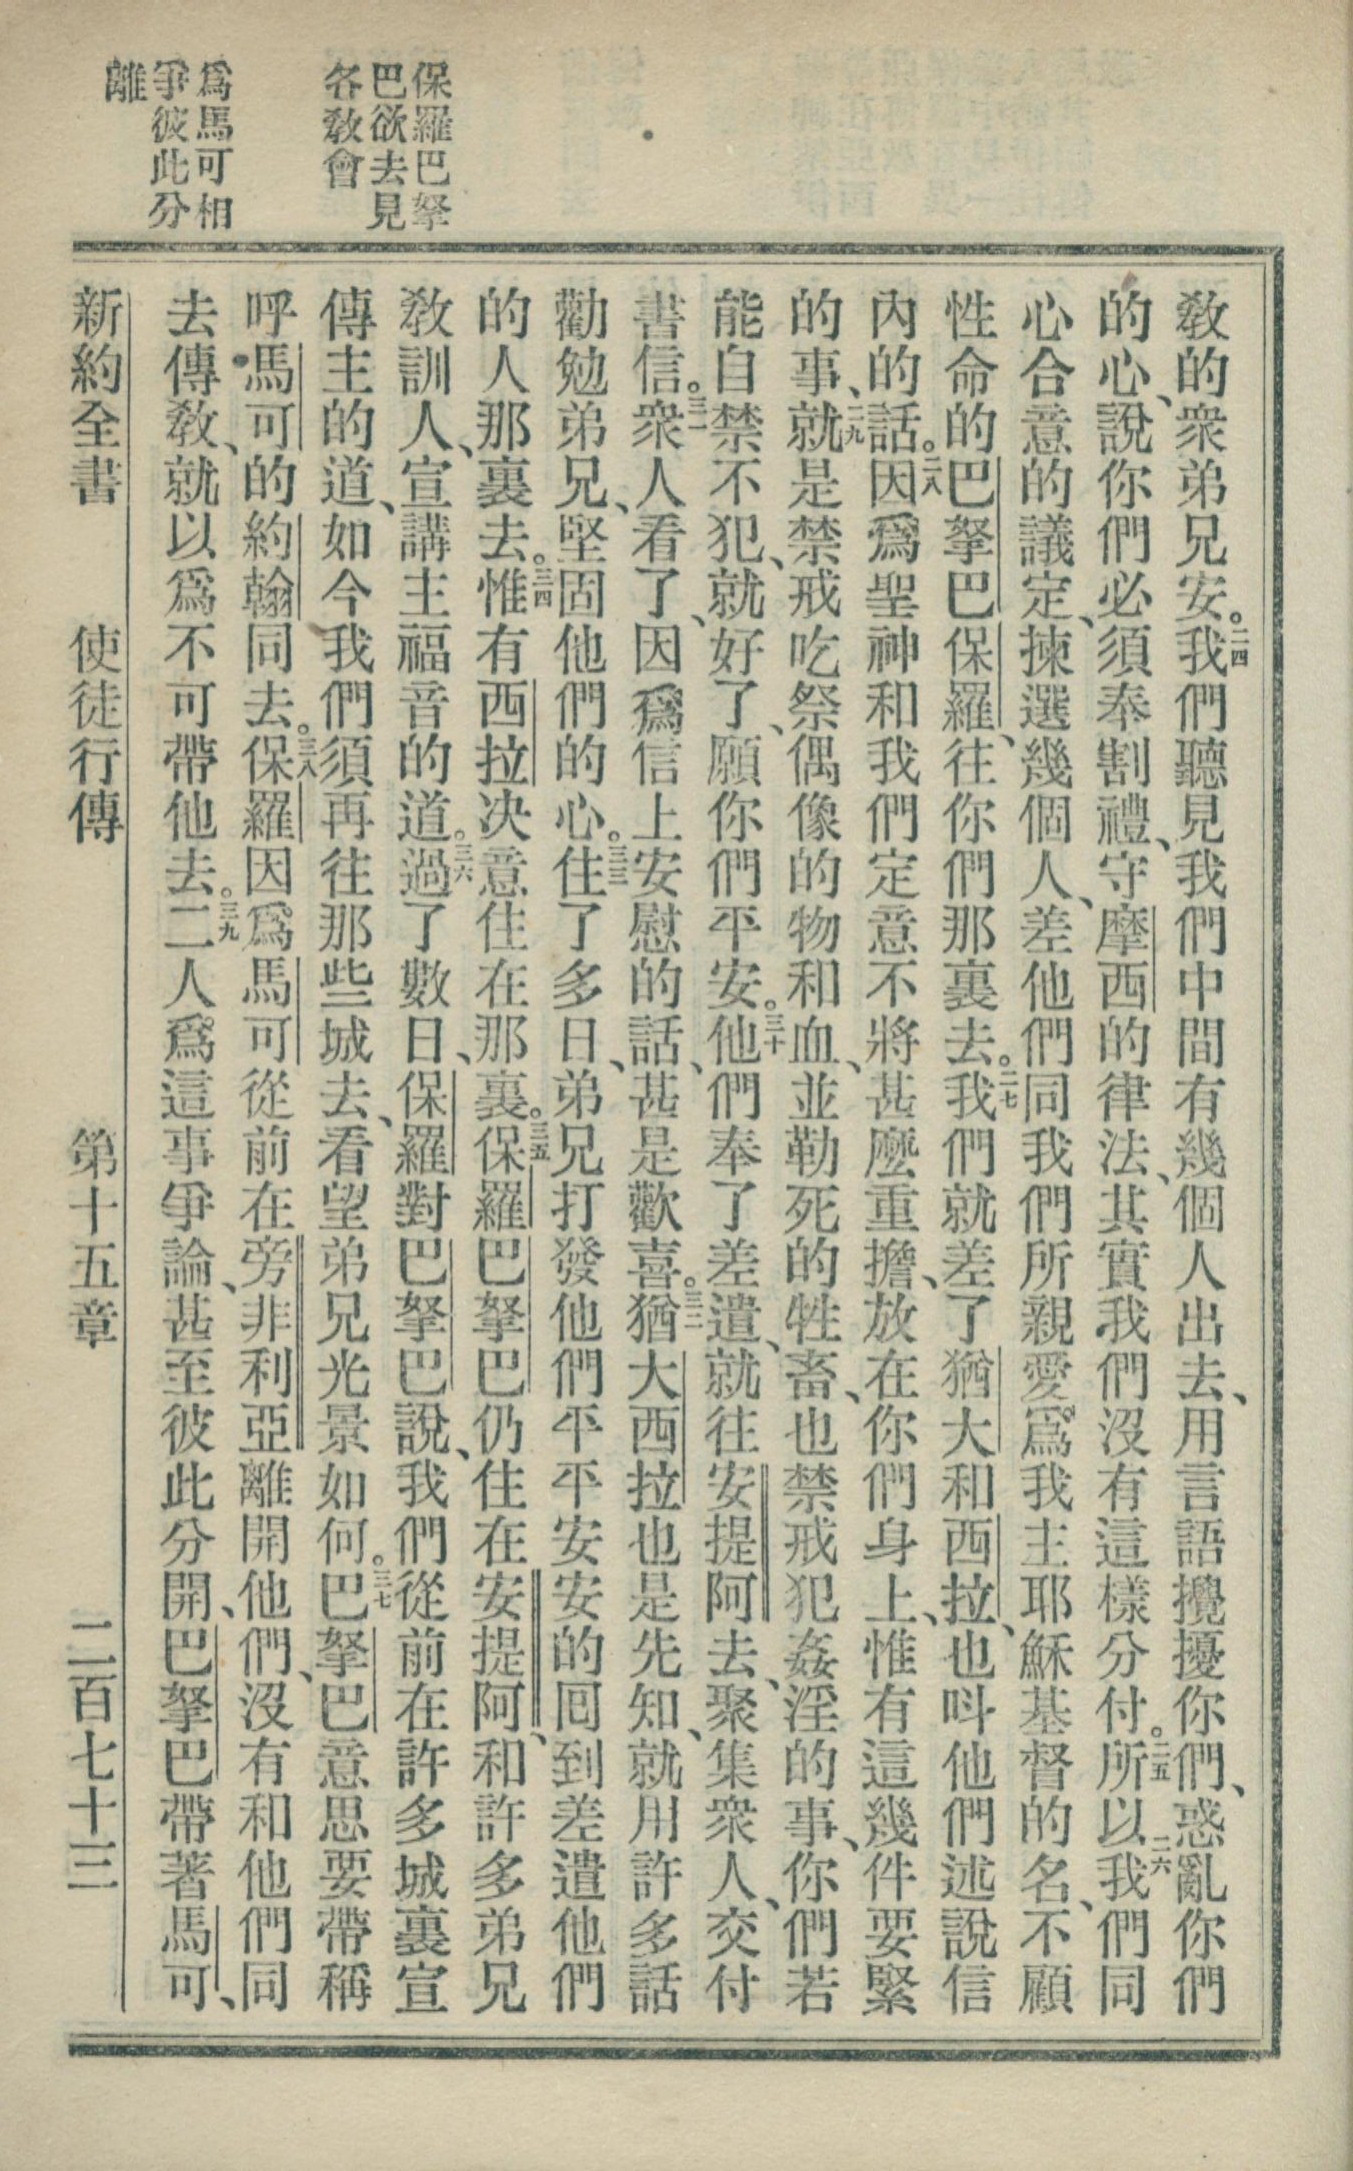 保羅巴拏
巴欲去見
各教會
爲馬可相
爭彼此分
離
教的衆弟兄安。二四我們聽見我們中間有幾個人出去、用言語攪擾你們、惑亂你們
的心、說你們必須奉割禮、守摩西的律法、其實我們沒有這樣分付。二五所以二六我們同
心合意的議定、揀選幾個人、差他們同我們所親愛爲我主耶穌基督的名、不顧
性命的巴拏巴保羅、往你們那裏去。二七我們就差了猶大和西拉、也呌他們述說信
內的話。二八因爲聖神和我們定意不將甚麼重擔、放在你們身上、惟有這幾件要緊
的事、二九就是禁戒吃祭偶像的物和血、並勒死的牲畜、也禁戒犯姦淫的事、你們若
能自禁不犯、就好了、願你們平安。三十他們奉了差遣、就往安提阿去、聚集衆人、交付
書信。三一衆人看了、因爲信上安慰的話、甚是歡喜。三二猶大西拉也是先知、就用許多話
勸勉弟兄、堅固他們的心。三三住了多日、弟兄打發他們平平安安的囘到差遣他們
的人那裏去。三四惟有西拉决意住在那裏。三五保羅巴拏巴仍住在安提阿、和許多弟兄
教訓人、宣講主福音的道。三六過了數日、保羅對巴拏巴說、我們從前在許多城裏宣
傳主的道、如今我們須再往那些城去、看望弟兄光景如何。三七巴拏巴意思要帶稱
呼馬可的約翰同去。三八保羅因爲馬可從前在旁非利亞離開他們、沒有和他們同
去傳教、就以爲不可帶他去。三九二人爲這事爭論、甚至彼此分開、巴拏巴帶著馬可、
新約全書 使徒行傳 第十五章 二百七十三